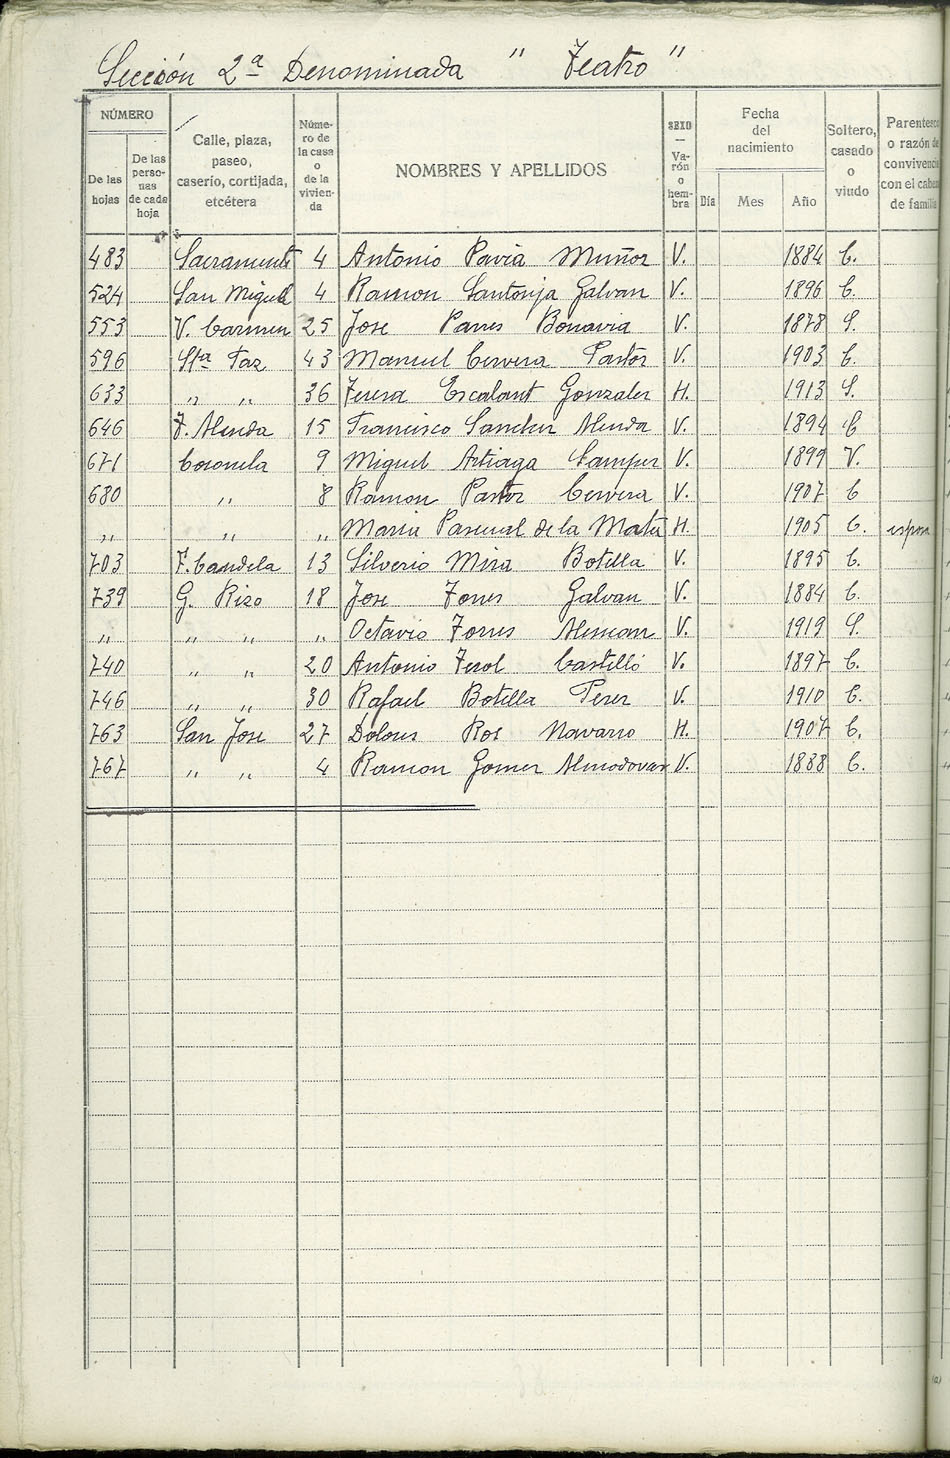 Sección 2ª Denominada " Teatro "
NÚMERO
De las hojas
De las perso- nas de cada hoja
Calle, plaza, paseo, caserío, cortijada, etcétera
Núme- ro de la casa o de la vivien- da
NOMBRES Y APELLIDOS
SEXO — Va- rón o hem- bra
Fecha del nacimiento
Día Mes Año
Soltero, casado o viudo
Parentesco o razón de convivencia con el cabeza de familia
483 Sacramento 4 Antonio Pavia Muñoz V. 1884 C.
524 San Miguel 4 Ramon Santonja Galvan V. 1896 C.
553 V. Carmen 25 Jose Panes Bonavia V. 1878 S.
596 Sta Faz 43 Manuel Cervera Pastor V. 1903 C.
633 " " 36 Teresa Escolant Gonzalez H. 1913 S.
646 F. Almda 15 Francisco Sanchez Almda V. 1894 C
671 Coronela 9 Miguel Artiaga Samper V. 1899 V.
680 " 8 Ramon Pastor Cervera V. 1907 C
" " " Maria Pascual de la Mata H. 1905 C. esposa
703 F. Candela 13 Silverio Mira Botella V. 1895 C.
739 G. Rizo 18 Jose Torres Galvan V. 1884 C.
" " " " Octavio Torres Aleman V. 1919 S.
740 " " 20 Antonio Terol Castelló V. 1897 C.
746 " " 30 Rafael Botella Perez V. 1910 C.
763 San Jose 27 Dolores Ros Navarro H. 1907 C.
767 " " 4 Ramon Gomez Almodovar V. 1888 C.